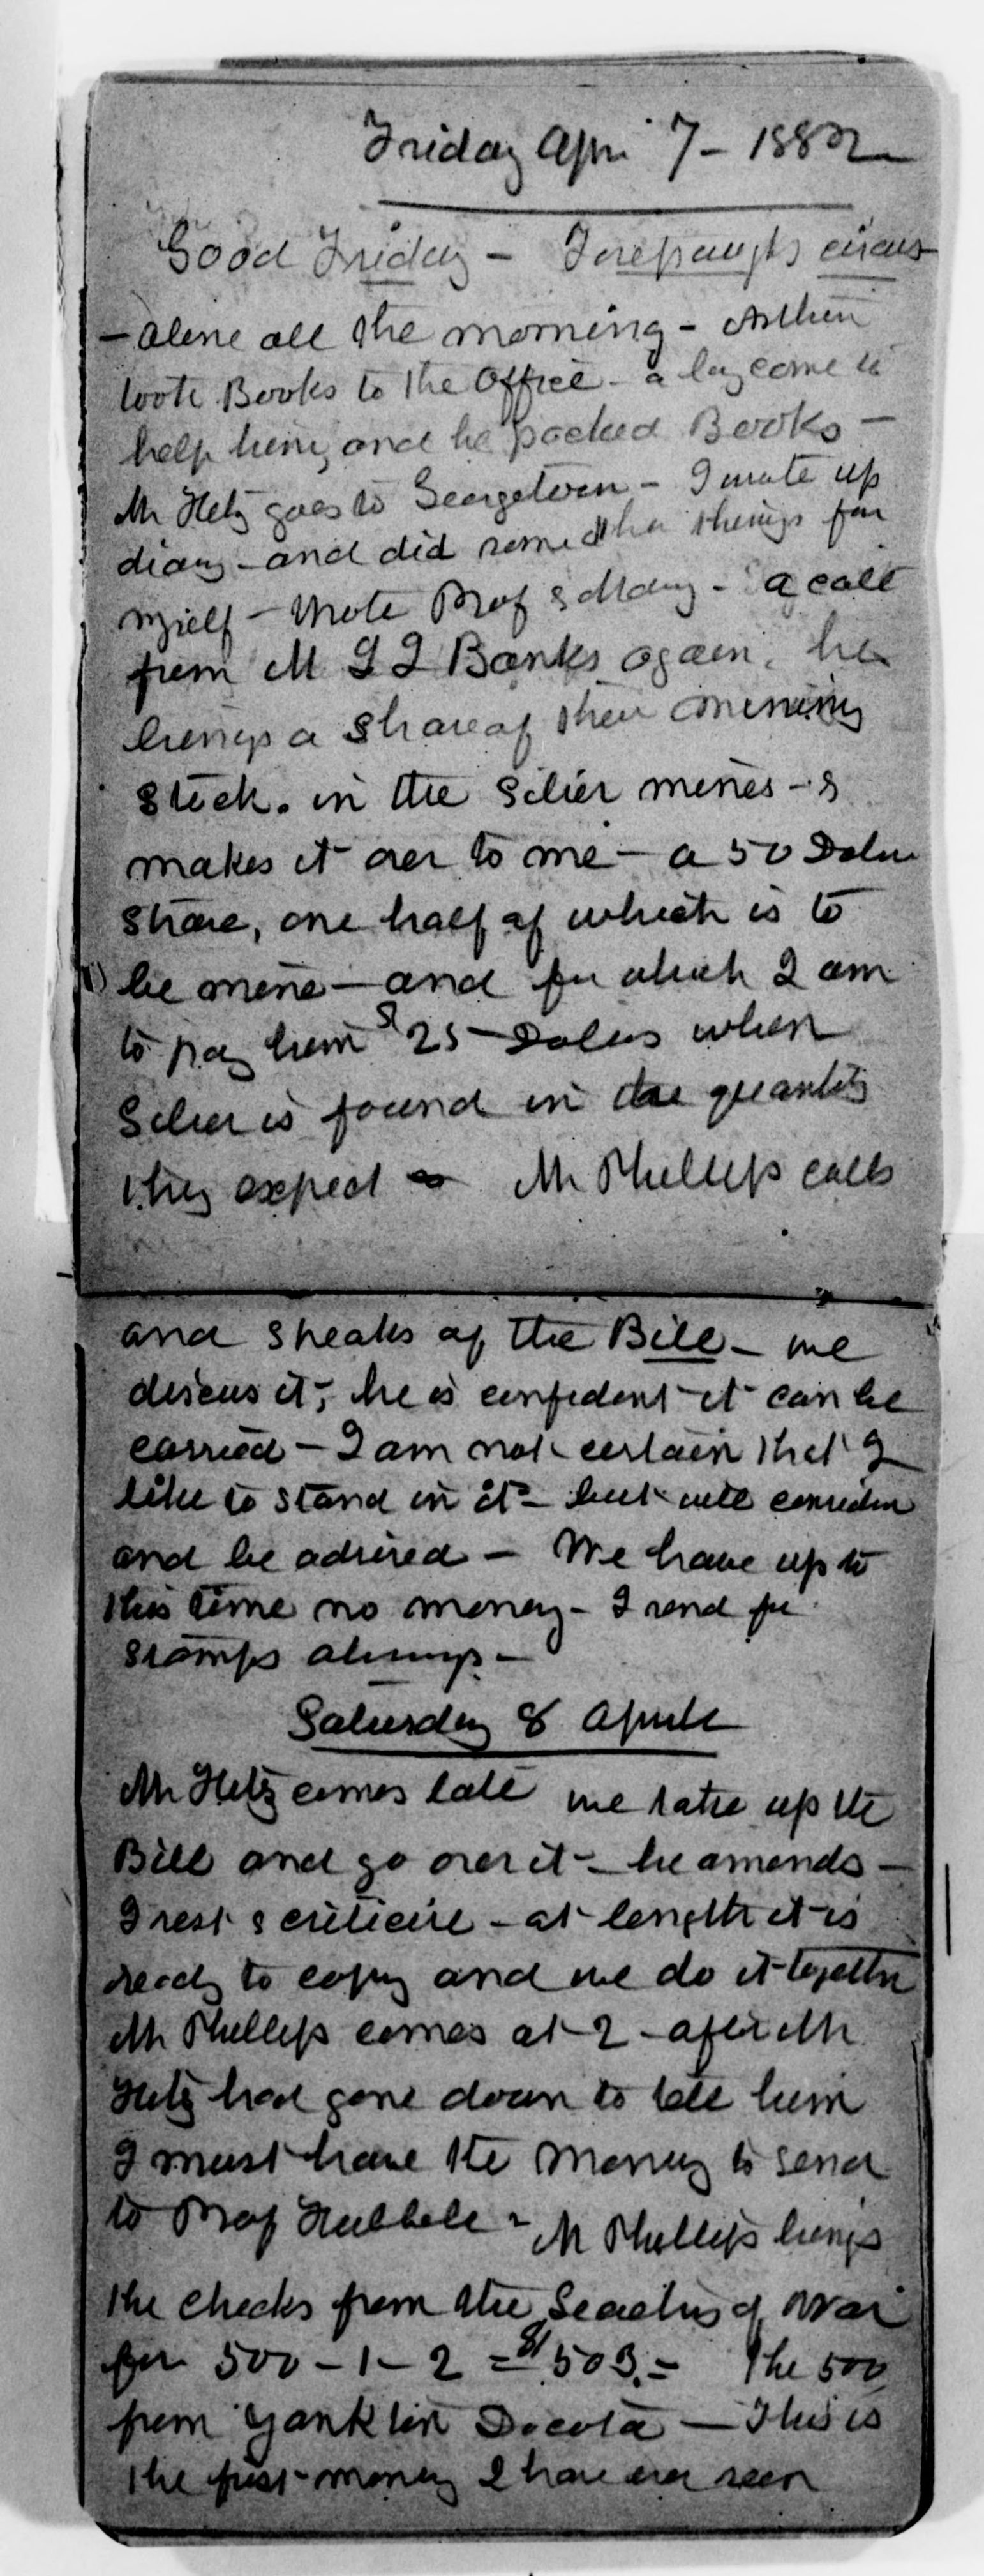 Friday Apri 7 - 1882
Good Friday - Forepaughs circus
- alone all the morning - Arthur
took Books to the Office - a boy come to
help him, and he packed Books -
Mr Hetz goes to Georgetown - I wrote up
diary - and did some other things for
myself - Wrote Prof & Mary - a call
from M Banks again, he
brings a share of their mining
stock. in the Silver mines - &
makes it over to me - a 50 Dolar
share, one half of which is to
be mine - and for which I am
to pay him $25 - Dolars when
Silver is found in the quantity
they expect - Mr Phillips calls
and speaks of the Bill - we
discus it, he is confident it can be
carried - I am not certain that I
like to stand in it - but will consider
and be advised - We have up to
this time no money - I send for
stamps always -
Saturday 8 April
Mr Hetz comes late we take up the
Bill and go over it - he amends -
I rest & criticise - at length it is
ready to copy and we do it together
Mr Phillips comes at 2 - after Mr
Hetz had gone down to tell him
I must have the money to send
to Prof Hubbell - Mr Phillips brings
the checks from the Secretary of War
for 500 - 1 - 2 = $503. - The 500
from Yankton Dacota - This is
the first money I have ever seen